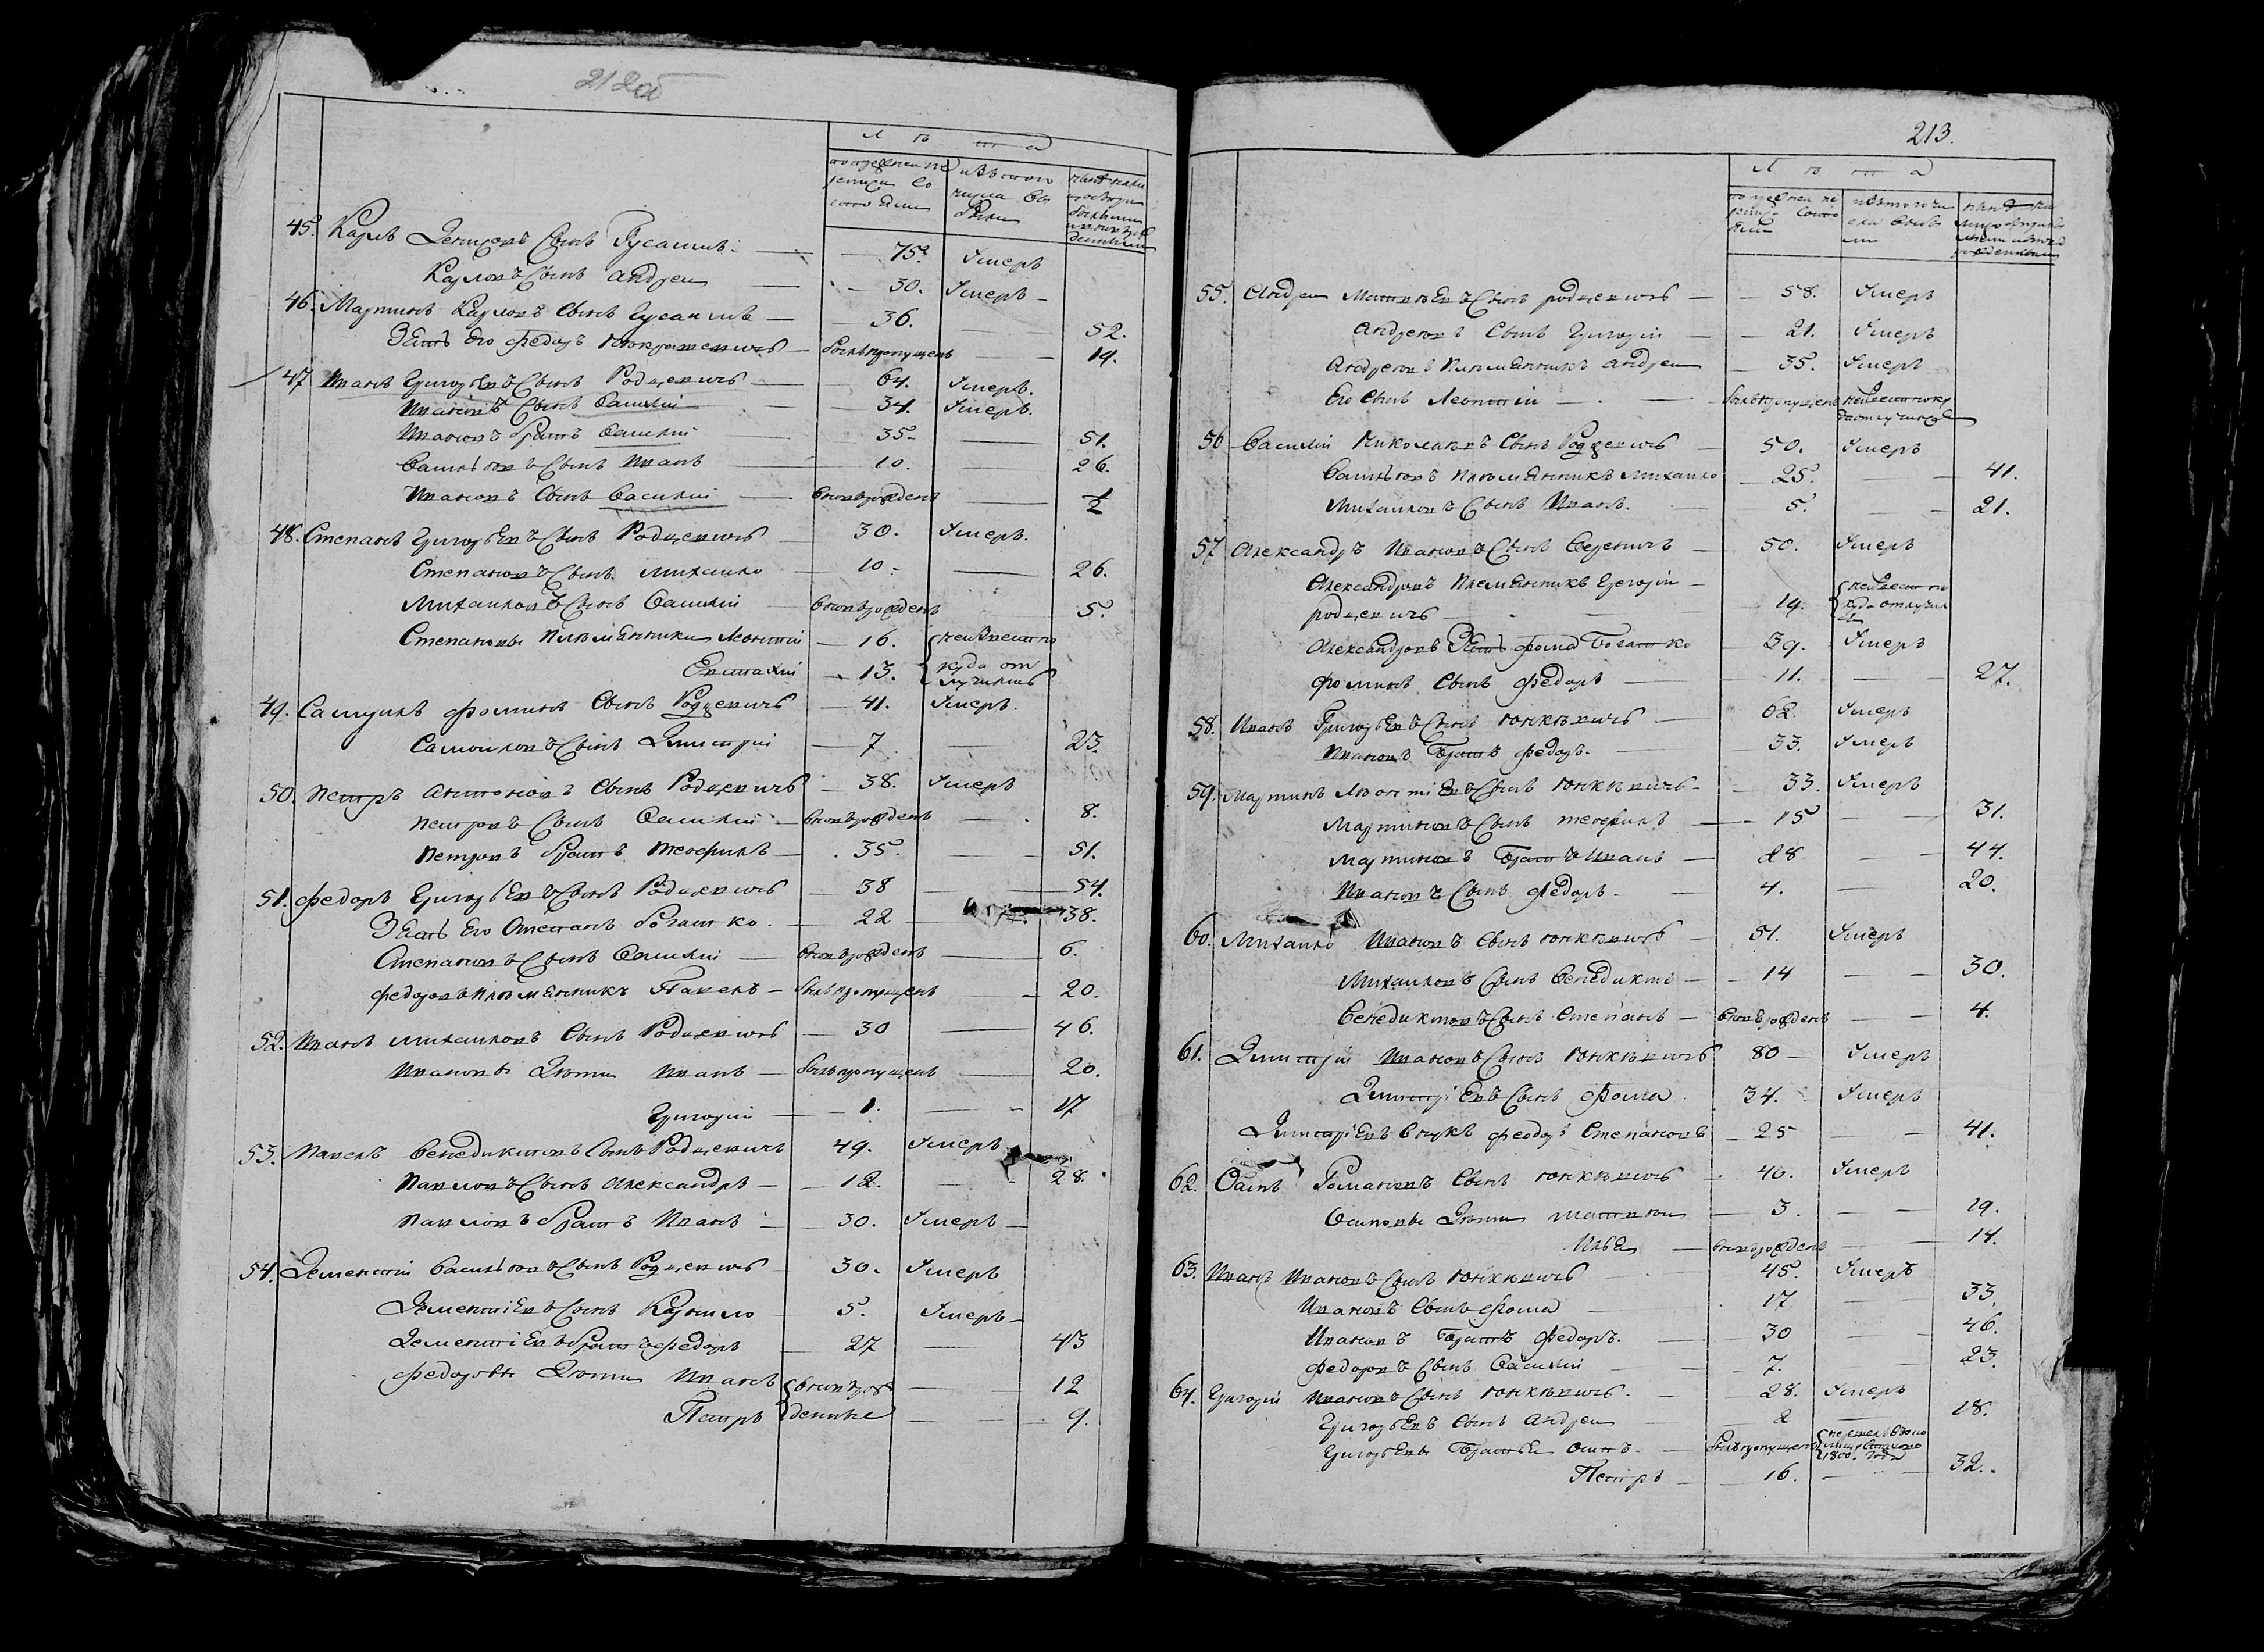 212 об
Лѣта
по прежней ре
визіи со
стояли
изъ того
числа вы
были
нынѣ на ли
цо съ при
былыми
и вновь рож
денными
45. Карлъ Денисовъ Сынъ Гусаимъ. 75. Умеръ
Карловъ Сынъ Андрей 30. Умеръ
46. Мартинъ Карловъ Сынъ Гусаимъ 36. 52.
Зять Его Федоръ былъ пропущенъ 19.
47 Иванъ Григорьевъ Сынъ Родцевичъ 64. Умеръ.
Ивановъ Сынъ Василій 34. Умеръ.
Ивановъ братъ Василій 35. 51.
Васильевъ Сынъ Иванъ 10. 26.
Ивановъ Сынъ Василій вновь рожденъ 1/2
48. Степанъ Григорьевъ Сынъ Родцевичъ 30. Умеръ.
Степановъ Сынъ Михайло 10. 26.
Михайловъ Сынъ Василій вновь рожденъ 5.
Степановы племянники Леонтій 16. неизвестно
Евстафій 13. куда от
лучились
49. Самуилъ Фоминъ Сынъ Родцевичъ 41. Умеръ.
Самойловъ Сынъ Дмитрій 7. 23.
50. Петръ Антоновъ Сынъ Родцевичъ 38. Умеръ
Петровъ Сынъ Василій вновь рожденъ 8.
Петровъ братъ Теофилъ 35. 51.
51. Федоръ Григорьевъ Сынъ Родцевичъ 38 54.
Зять Его Степанъ Богатко. 22 38.
Степановъ Сынъ Василій вновь рожденъ 6.
Федоровъ племянникъ Павелъ былъ пропущенъ 20.
52. Иванъ Михайловъ Сынъ Родцевичъ 30 46.
Ивановы Дѣти Иванъ былъ пропущенъ 20.
Григорій 1. 17
53. Павелъ Бенедиктовъ Сынъ Родцевичъ 49. Умеръ
Павловъ Сынъ Александръ 12. 28.
Павловъ братъ Иванъ 30. Умеръ
54. Дементій Васильевъ Сынъ Родцевичъ 30. Умеръ
Дементіевъ Сынъ Кирило 5. Умеръ
Дементіевъ братъ Федоръ 27 43
Федоровы Дѣти Иванъ вновь рож 12
Петръ денные 9.
213.
Лѣта
по прежней ре
визіи состо
яли
изъ того чи
сла выбы
ли
нынѣ на
лицо съ прибы
лыми и вновь
рожденными
55. Андрей Матвѣевъ Сынъ Родцевичъ 58. Умеръ
Андреевъ Сынъ Григорій 21. Умеръ
Андреевъ племянникъ Андрей 35. Умеръ
Его Сынъ Леонтій былъ пропущенъ неизвестно ку
да отлучился
56 Василій Николаевъ Сынъ Родцевичъ 50. Умеръ
Васильевъ племянникъ Михайло 25. 41.
Михайловъ Сынъ Иванъ. 5. 21.
57 Александръ Ивановъ Сынъ 50. Умеръ
Александровъ племянникъ Григорій
Родцевичъ 19. неизвестно
куда отлучил
ся
Александровъ Зять Фома Богатко 39. Умеръ
Фоминъ Сынъ Федоръ 11. 27.
58. Иванъ Григорьевъ Сынъ Юнкевичъ 62. Умеръ
Ивановъ братъ Федоръ. 33. Умеръ
59. Мартинъ Леонтіевъ Сынъ Юнкевичъ 33. Умеръ
Мартиновъ Сынъ Теофилъ 15 31.
Мартиновъ братъ Иванъ 28 44.
Ивановъ Сынъ Федоръ. 4. 20.
60. Михайло Ивановъ Сынъ Юнкевичъ 51. Умеръ
Михайловъ Сынъ Бенедиктъ 14 30.
Бенедиктовъ Сынъ Степанъ вновь рожденъ 4.
61. Дмитрій Ивановъ Сынъ Юнкевичъ 80 Умеръ
Дмитріевъ Сынъ Фома 34. Умеръ
Дмитріевъ внукъ Федоръ Степановъ 25 41.
62. Осипъ Романовъ Сынъ Юнкевичъ 40. Умеръ
Осиповы Дѣти Матвѣй 3. 19.
Илья вновь рожденъ 14.
63. Иванъ Ивановъ Сынъ Юнкевичъ 45. Умеръ
Ивановъ Сынъ Фома 17. 33.
Ивановъ братъ Федоръ. 30 46.
Федоровъ Сынъ Василій 7. 23.
64. Григорій Ивановъ Сынъ Юнкевичъ. 28. Умеръ
Григорьевъ Сынъ Андрей 2 18.
Григорьевы братья Осипъ. былъ пропущенъ
1800. года
Петръ 16. 32.